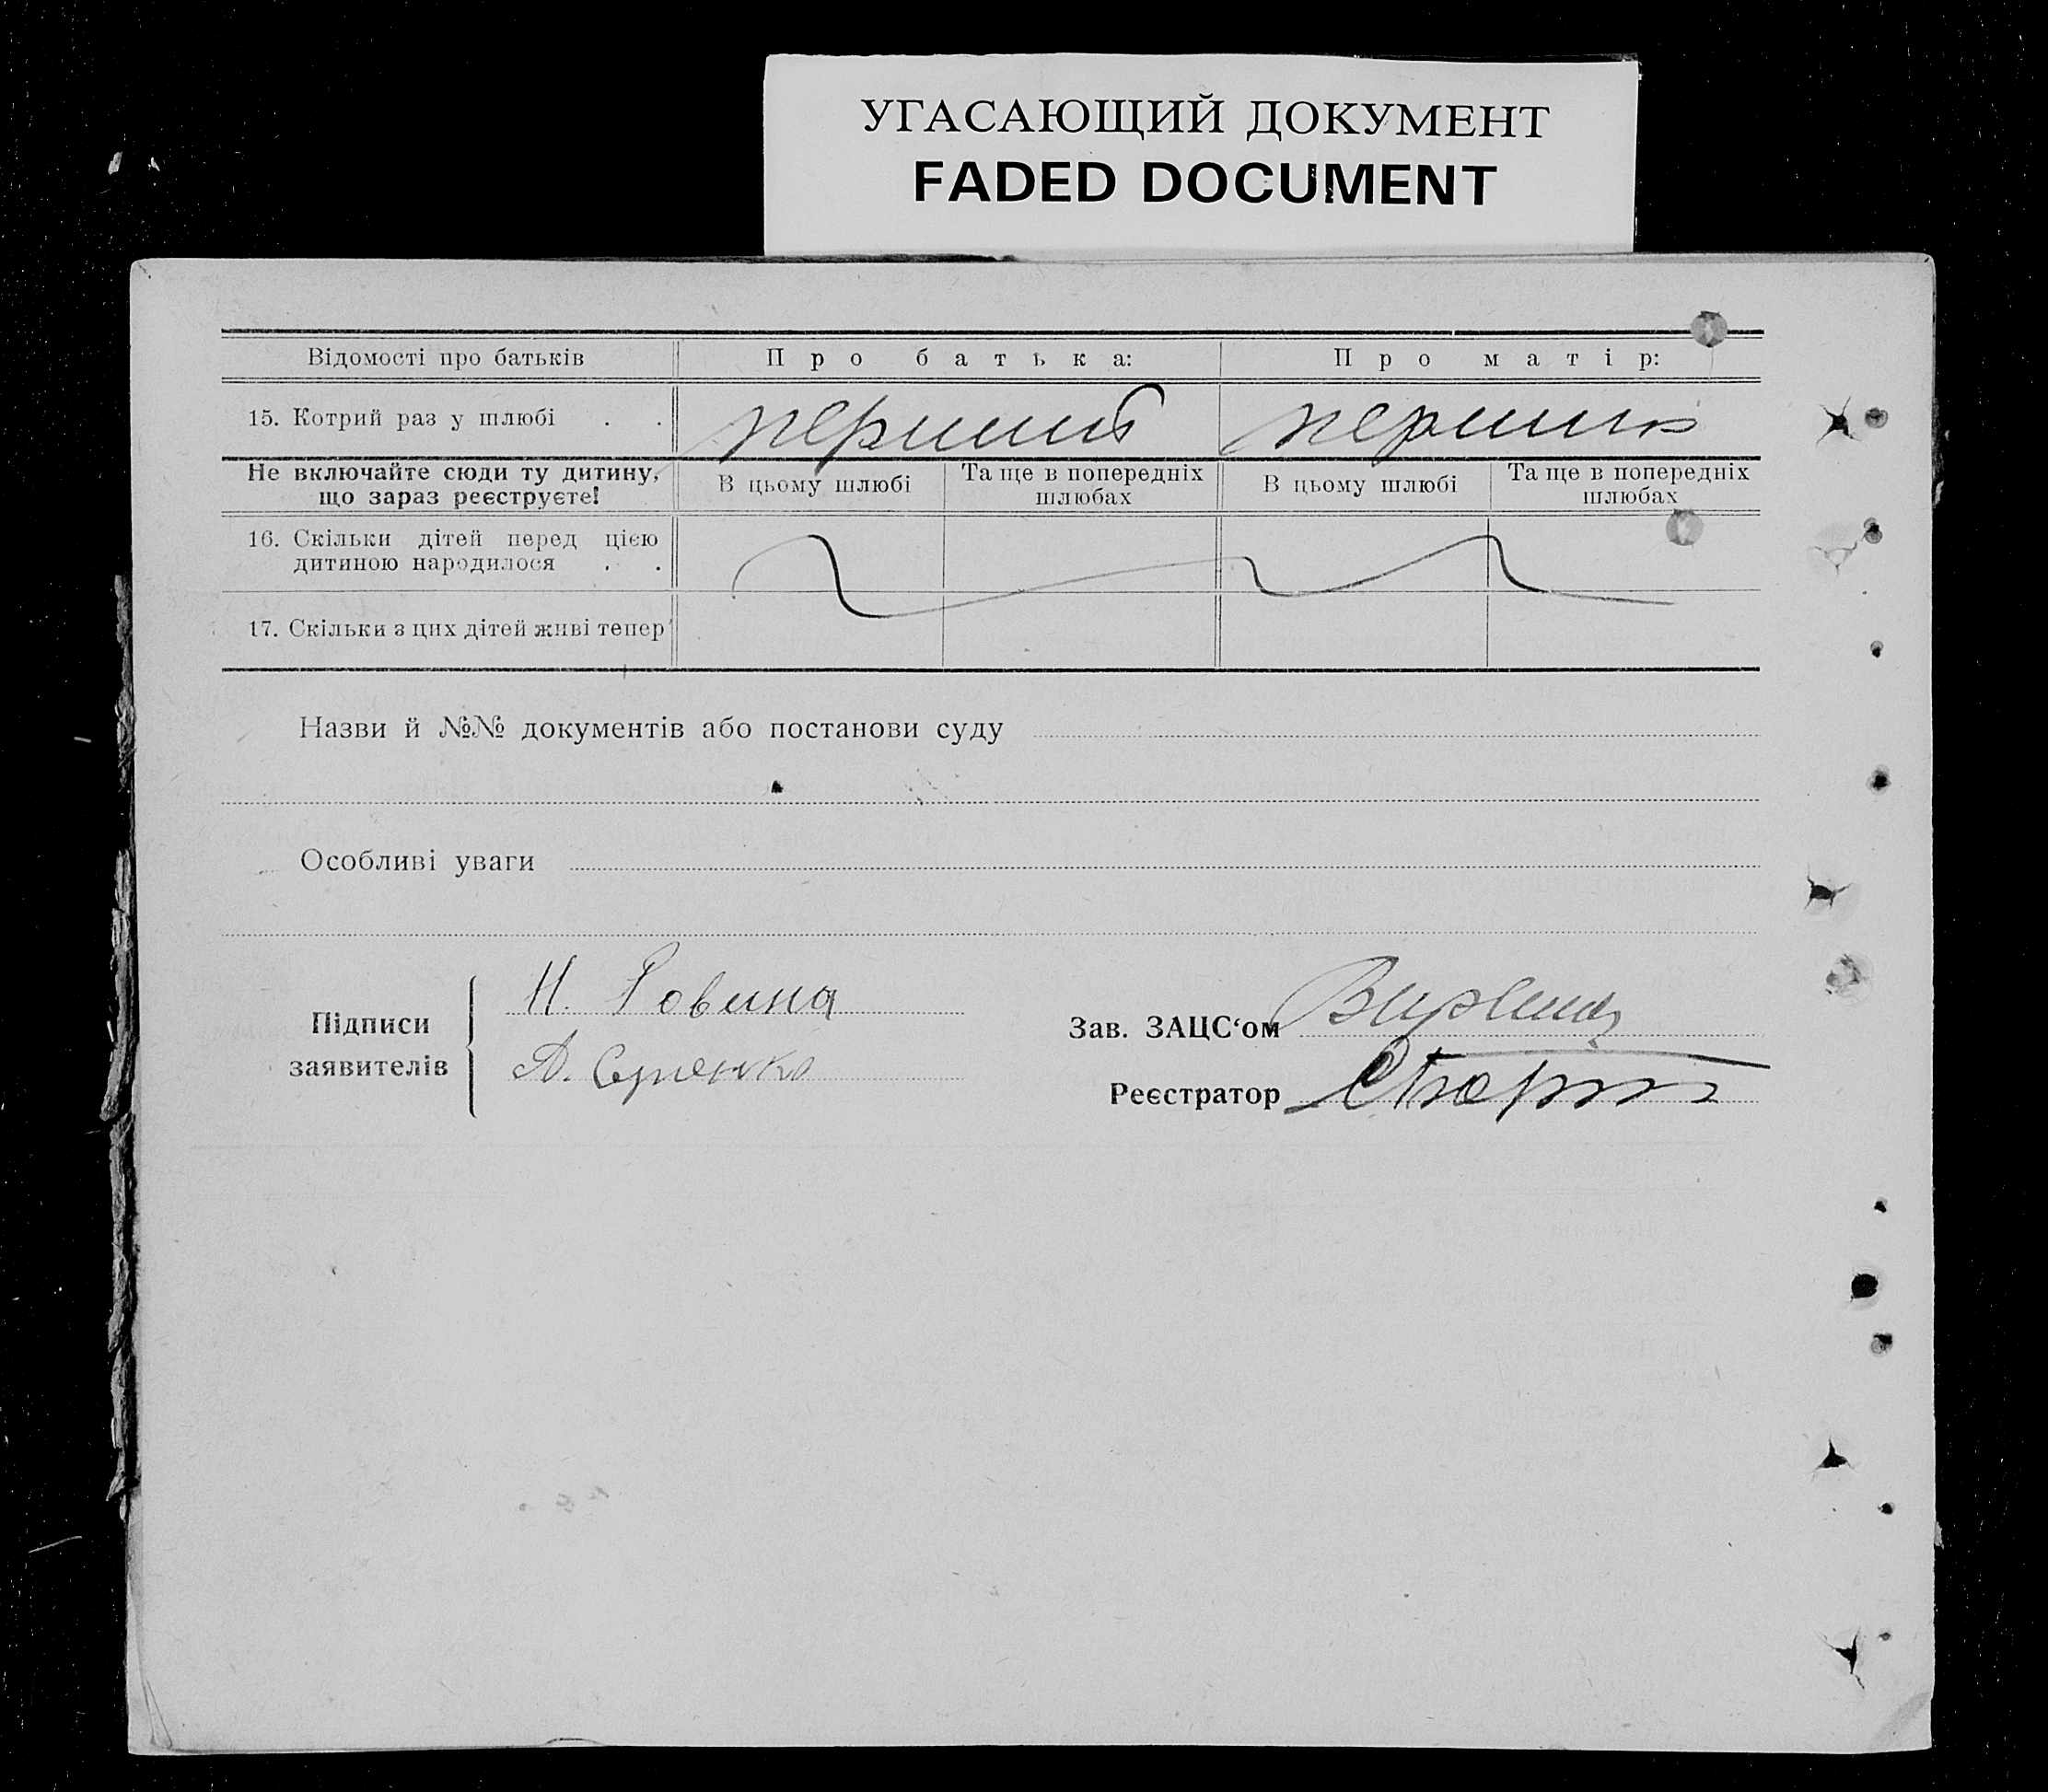 УГАСАЮЩИЙ ДОКУМЕНТ
FADED DOCUMENT
Відомості про батьків Про батька: Про матір:
15. Котрий раз у шлюбі . . перший перший
Не включайте сюди ту дитину, що зараз реєструєте! В цьому шлюбі Та ще в попередніх шлюбах В цьому шлюбі Та ще в попередніх шлюбах
16. Скільки дітей перед цією
дитиною народилося . .
17. Скільки з цих дітей живі тепер
Назви й №№ документів або постанови суду
Особливі уваги
Підписи
заявителів
Н. Ровина
А.
Зав. ЗАЦС‘ом
Реєстратор